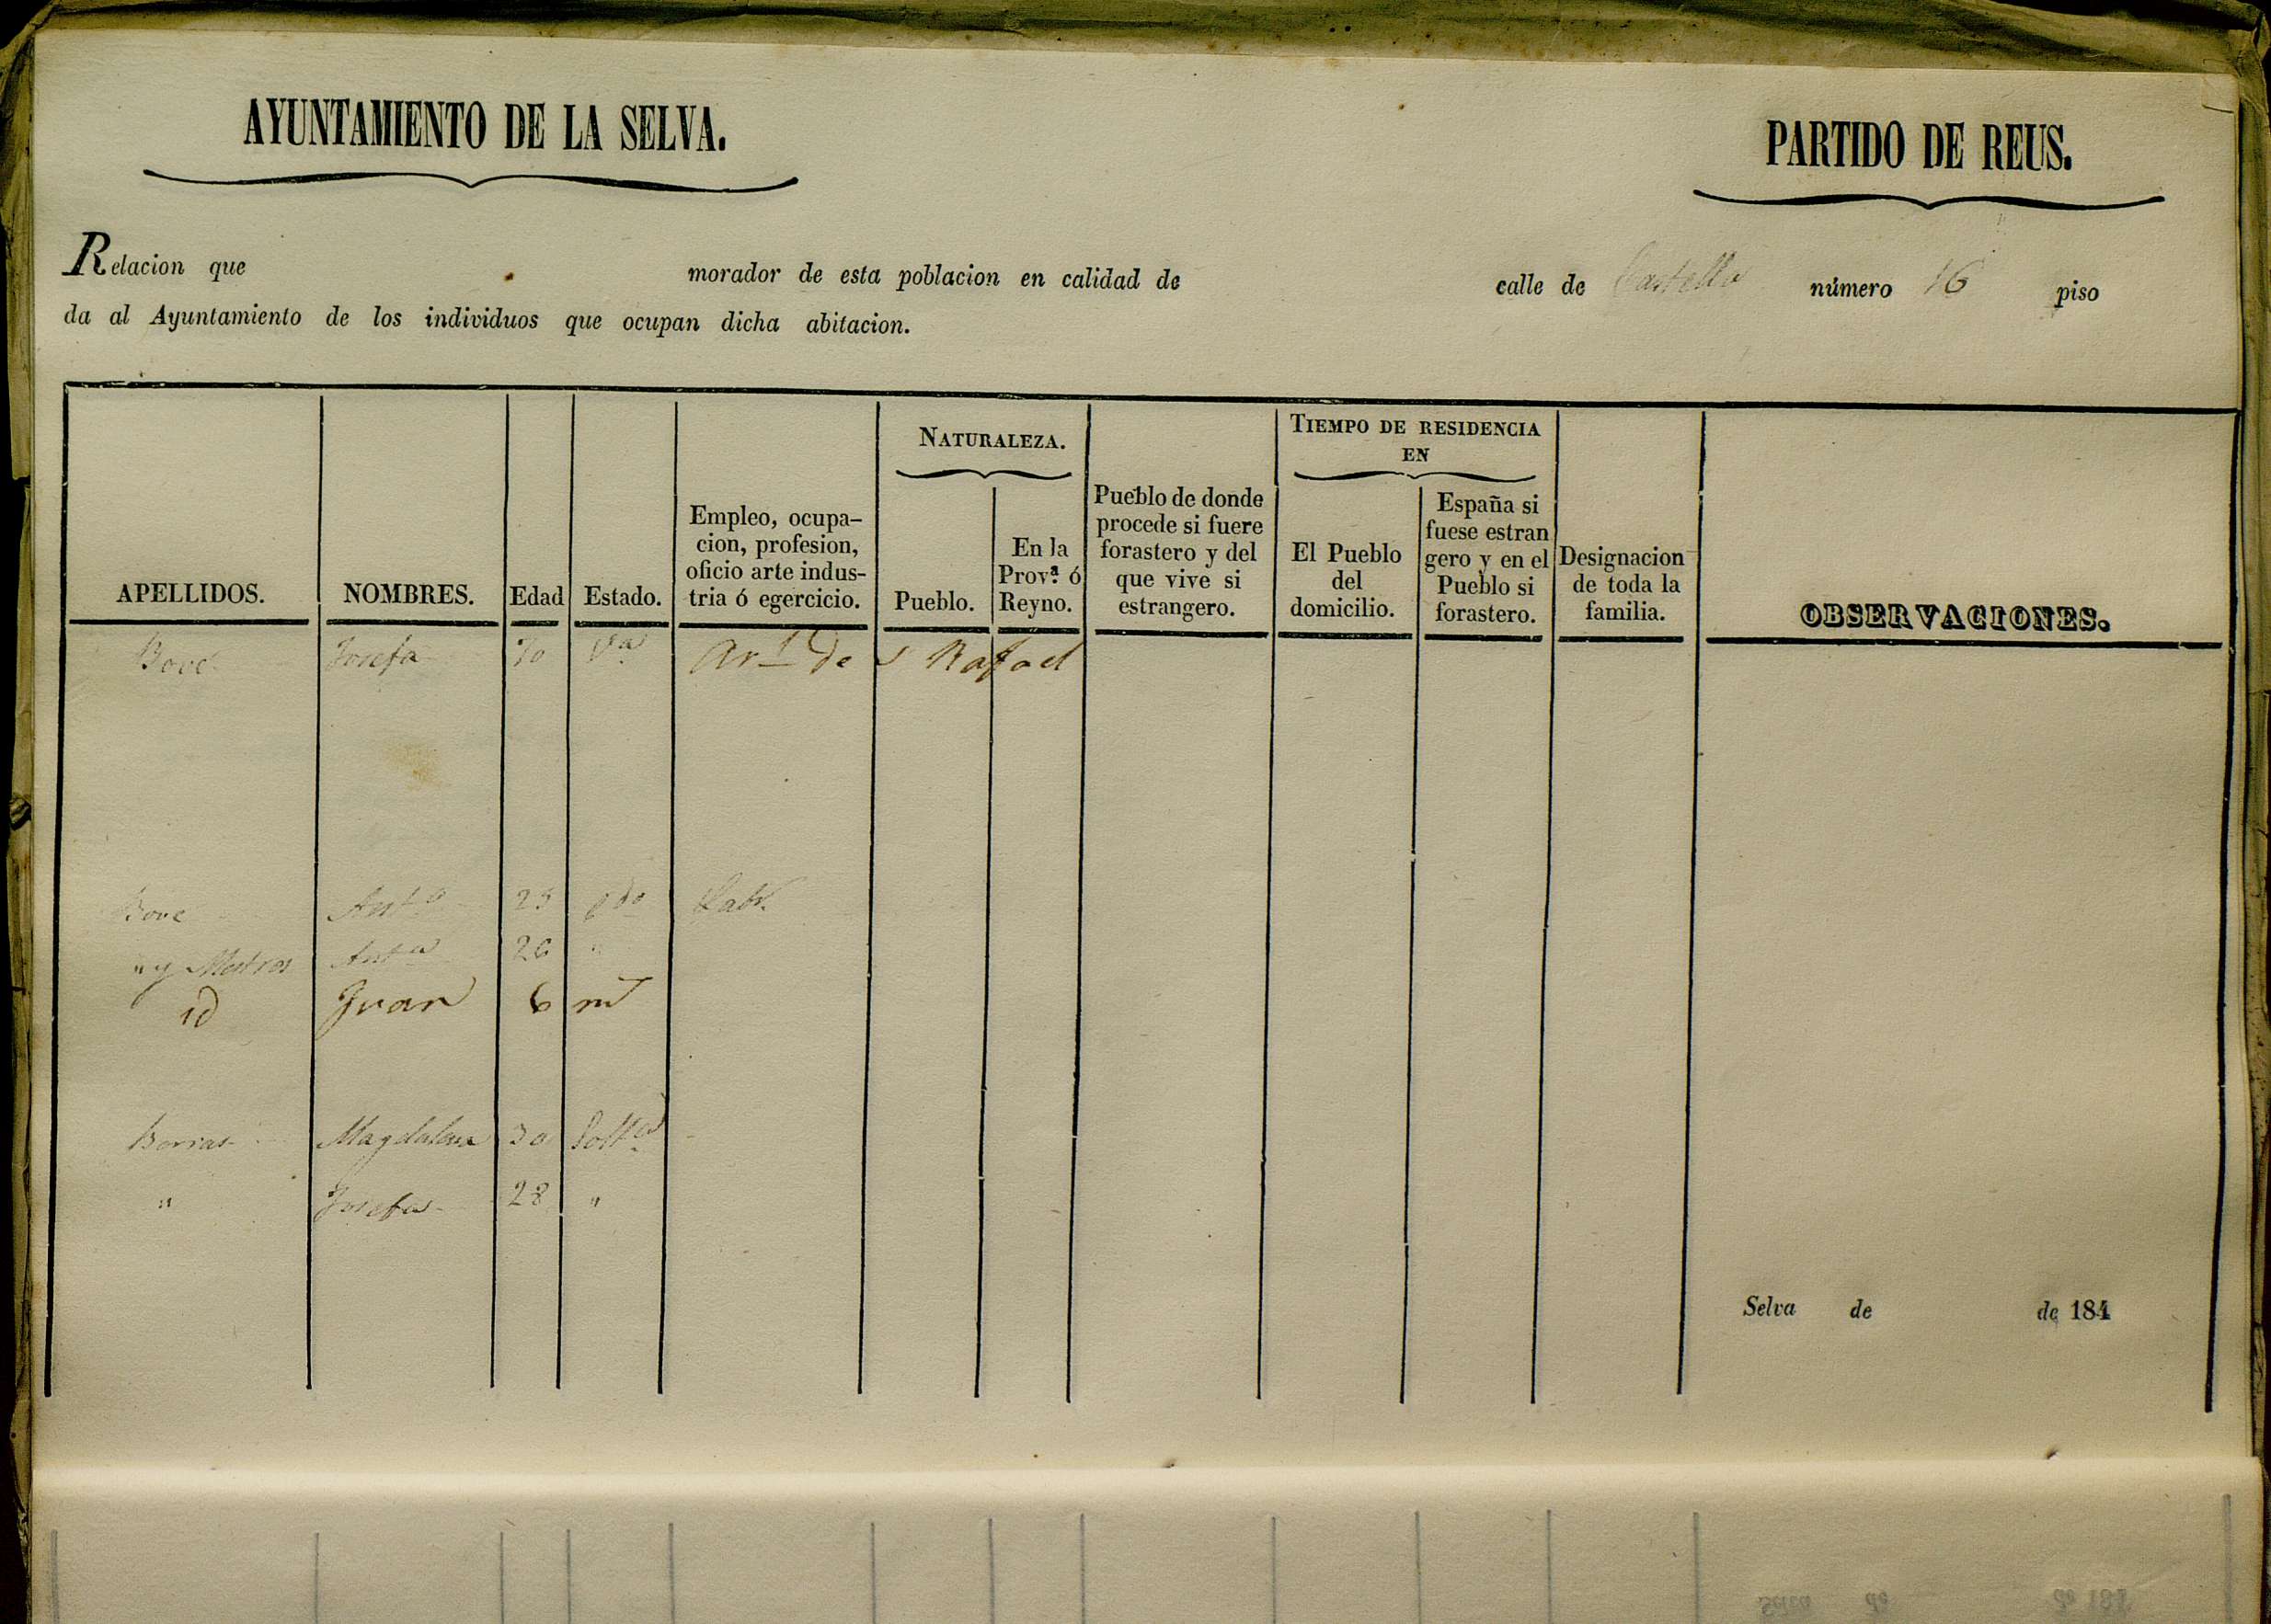 AYUNTAMIENTO DE LA SELVA.
PARTIDO DE REUS.
Relacion que morador de esta poblacion en calidad de calle de Castello número 16 piso
da al Ayuntamiento de los individuos que ocupan dicha abitacion.
APELLIDOS.
NOMBRES.
Edad
Estado.
Empleo, ocupa-
cion, profesion,
oficio arte indus-
tria ó egercicio.
NATURALEZA.
Pueblo.
En la
Provª. ó
Reyno.
Pueblo de donde
procede si fuere
forastero y del
que vive si
estrangero.
TIEMPO DE RESIDENCIA
EN
El Pueblo
del
domicilio.
España si
fuese estran
gero y en el
Pueblo si
forastero.
Designacion
de toda la
familia.
OBSERVACIONES.
Bové Josefa 70 Vª de Rafael
Bove Antº 29 cdo Labr.
" y Mestres Antª 26 "
id Juan 6 m
Borras Magdalena 30 Soltª
" Josefa 28 "
Selva de de 184